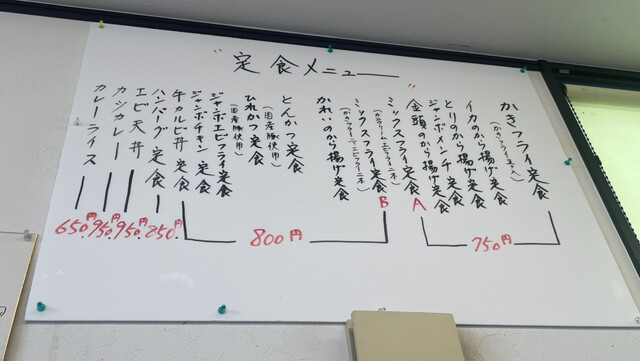 "定食メニュー"
かきフライ定食
(かきフライ5ヶ入)
イカのから揚げ定食
とりのから揚げ定食
ジャンボインチ定食
金頭のから揚げ定食
ミックスフライ定食 A
ミックスフライ定食 B
かれいのから揚げ定食
とんかつ定食
(国産豚使用)
ひれかつ定食
(国産豚使用)
ジャンボエビフライ定食
ジャンボチキン定食
牛カルビ丼定食
ハンバーグ定食
エビ天丼
カツカレー
カレーライス
750円
800円
850円
950円
950円
650円